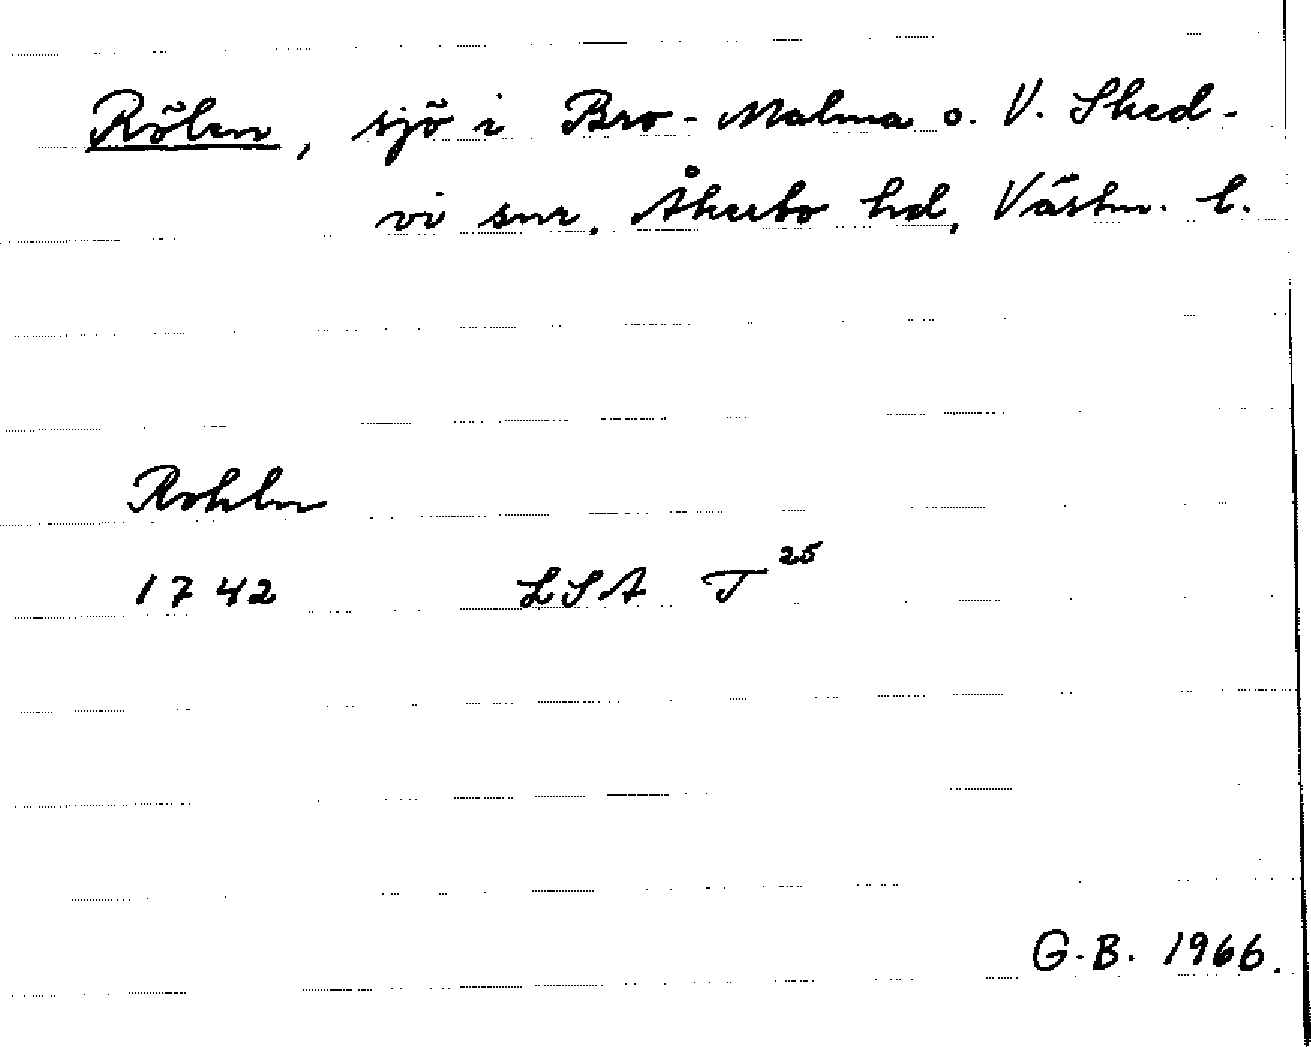 Rölen, sjö i Bro-Malma o. V. Sked-
vi snr, Åkerbo hd, Västm. l.
Rohln
1742 LSA T 25
G.B. 1966.